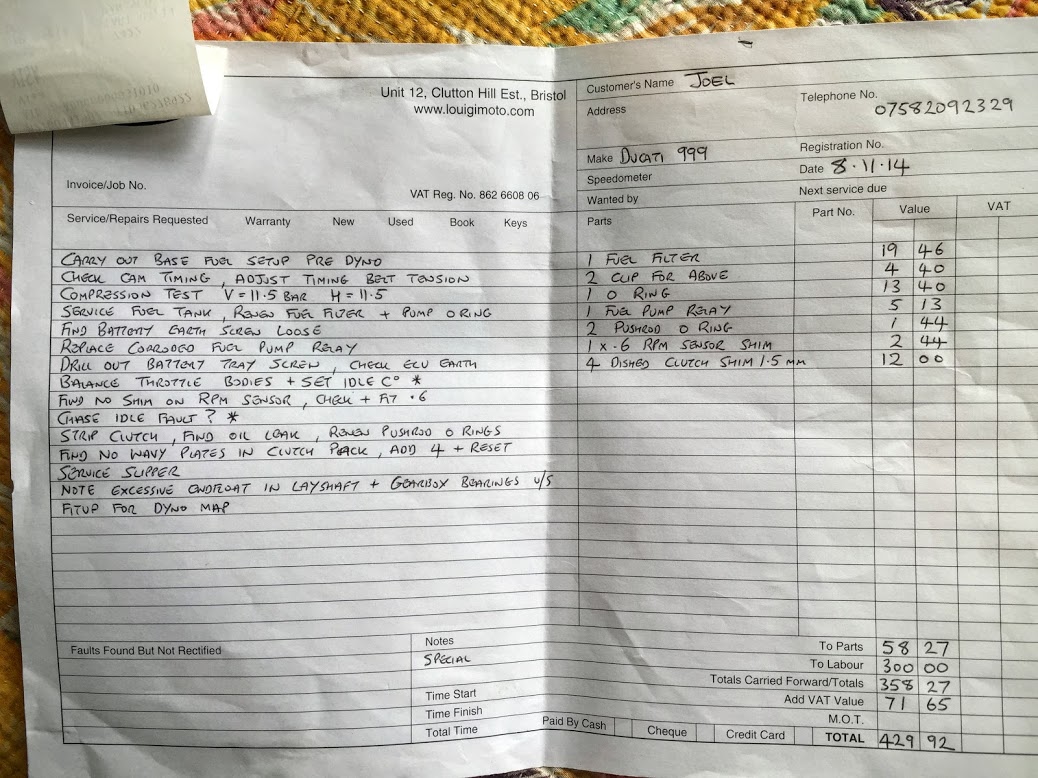 Unit 12, Clutton Hill Est., Bristol
www.louigimoto.com
Invoice/Job No.
VAT Reg. No. 862 6608 06
Customer's Name JOEL
Address
Telephone No.
07582092329
Make DUCATI 999
Registration No.
Speedometer
Date 8.11.14
Wanted by
Next service due
Service/Repairs Requested Warranty New Used Book Keys
Parts Part No. Value VAT
CARRY OUT BASE FUEL SETUP PRE DYNO
CHECK CAM TIMING, ADJUST TIMING BELT TENSION
COMPRESSION TEST V=11.5 BAR H=11.5
SERVICE FUEL TANK, RENEW FUEL FILTER + PUMP O RING
FIND BATTERY EARTH SCREW LOOSE
REPLACE CORRODED FUEL PUMP RELAY
DRILL OUT BATTERY TRAY SCREW, CHECK ECU EARTH
BALANCE THROTTLE BODIES + SET IDLE C° *
FIND NO SHIM ON RPM SENSOR, CHECK + FIT .6
CHASE IDLE FAULT? *
STRIP CLUTCH, FIND OIL LEAK, RENEW PUSHROD O RINGS
FIND NO WAVY PLATES IN CLUTCH PACK, ADD 4 + RESET
SERVICE SLIPPER
NOTE EXCESSIVE ENDFLOAT IN LAYSHAFT + GEARBOX BEARINGS U/S
FITUP FOR DYNO MAP
1 FUEL FILTER 19 46
2 CLIP FOR ABOVE 4 40
1 O RING 13 40
1 FUEL PUMP RELAY 5 13
2 PUSHROD O RING 1 44
1 x .6 RPM SENSOR SHIM 2 44
4 DISHED CLUTCH SHIM 1.5 MM 12 00
Faults Found But Not Rectified
Notes
SPECIAL
Time Start
Time Finish
Total Time
To Parts 58 27
To Labour 300 00
Totals Carried Forward/Totals 358 27
Add VAT Value 71 65
M.O.T.
Paid By Cash Cheque Credit Card TOTAL 429 92